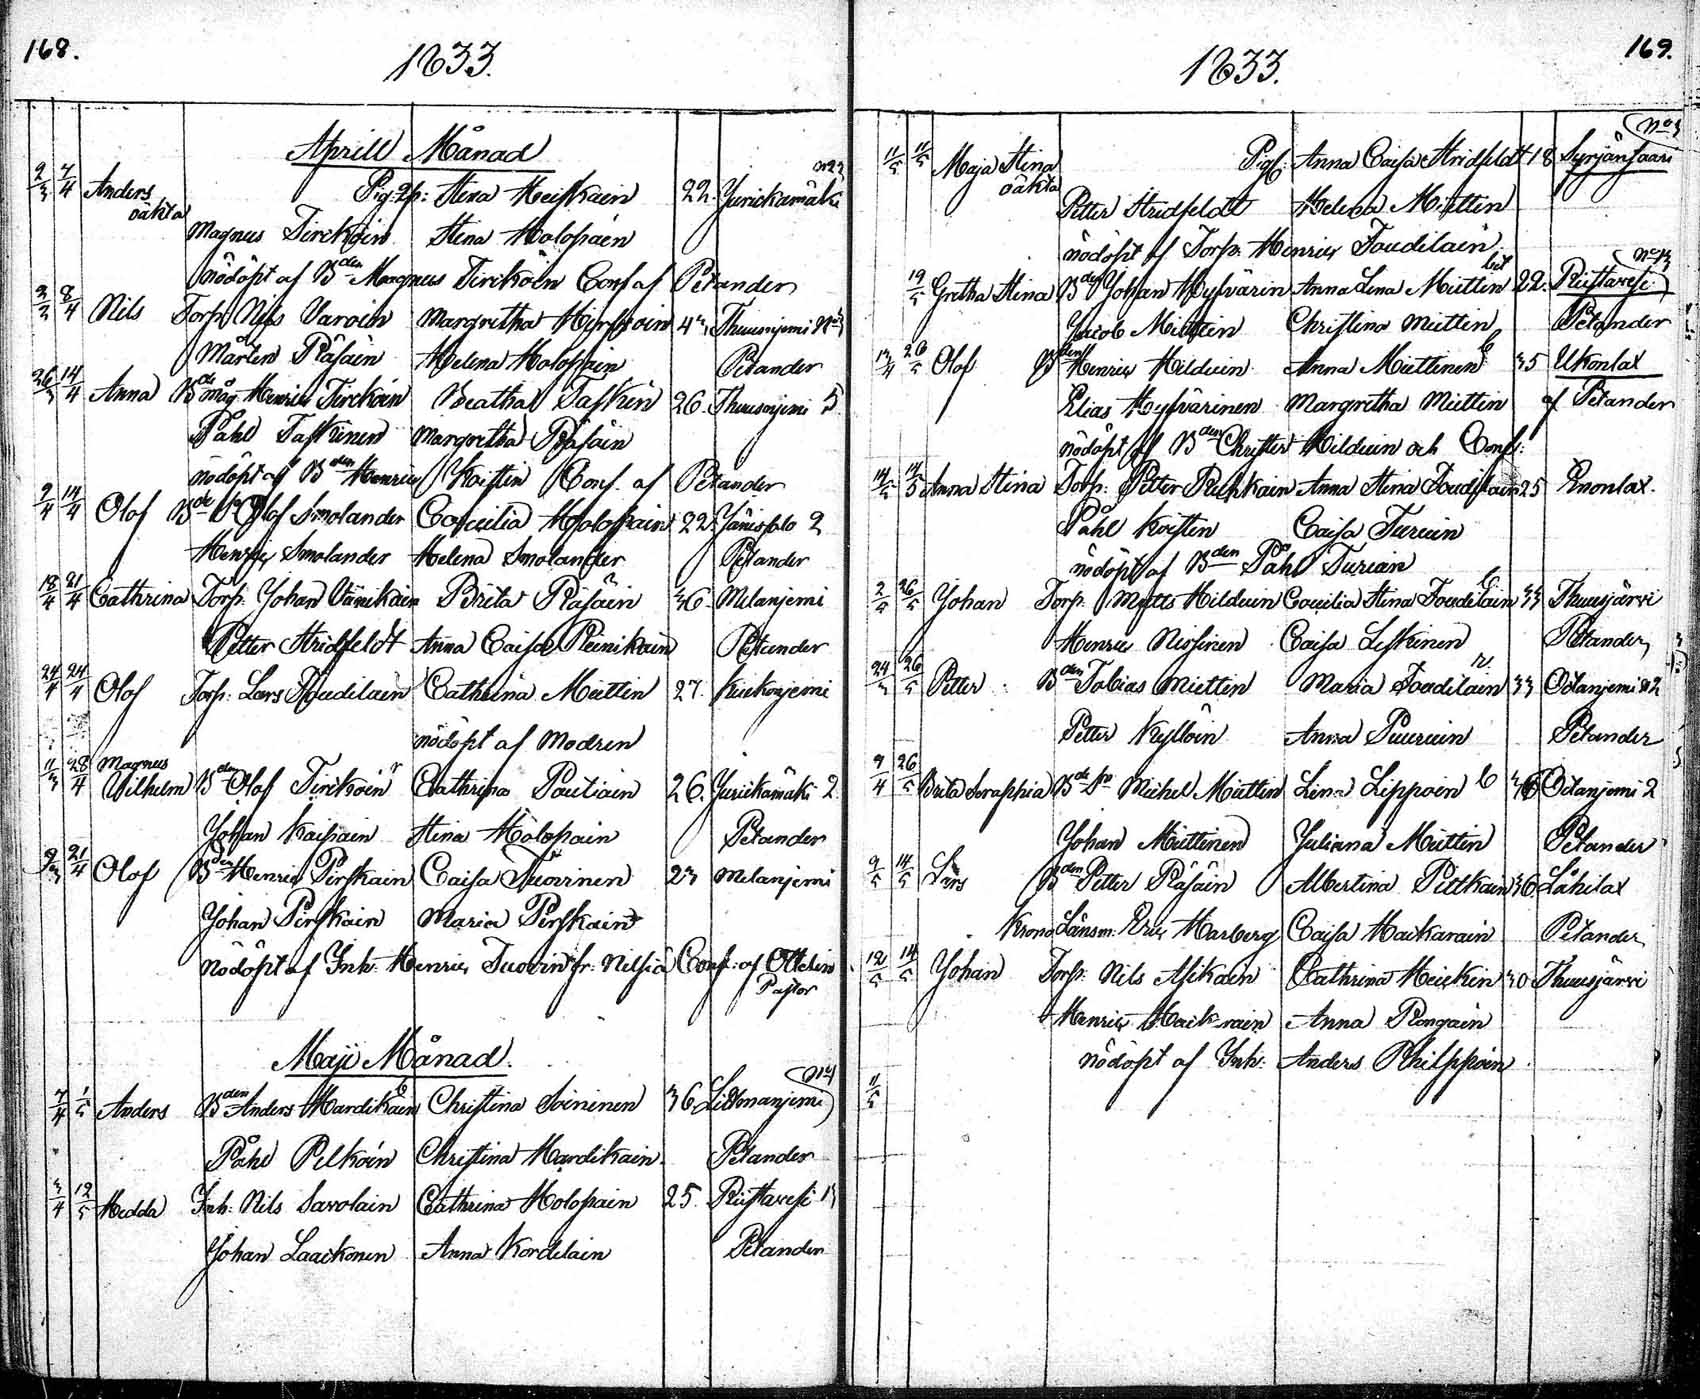 168.
1833.
Aprill Månad
No 22
2/3 7/4 Anders Pig. 2p: Stina Heiskain 22. Jurickamäki
oäkta
Magnus Tirckoin Stina Holopain
nödöpt af Bden Magnus Tirckoin Conf af Petander
3/2 8/4 Nils Torp. Nils Varoin Margretha Hirfvoin 4 Thuusnjemi No 3
Mårten Räsäin Helena Holopain Petander
26/3 14/4 Anna Bde måg Henric Tirckoin Beatha Taskin 26. Thuusnjemi 5
Påhl Taskinen Margretha Räsäin
nödöpt af Bden Henric Koistin Conf. af Petander
9/4 14/4 Olof Bde Olof Smolander Coecilia Holopain 22. Jänissalo 2
Henric Smolander Helena Smolander Petander
18/4 21/4 Cathrina Torp. Johan Vänikäin Brita Räsäin 36. Melanjemi
Petter Stridfeldt Anna Caisa Reinikain Petander
24/4 24/4 Olof Torp: Lars Joudilain Cathrina Miettin 27. Kiukonjemi
nödöpt af Modren
Magnus
11/3 28/4 Wilhelm Bden Olof Tirikoin Cathrina Pautiain 26. Jurickamäki 2
Johan Kaipain Stina Holopain Petander
9/3 21/4 Olof Bden Henric Pirskain Caisa Tuovinen 23 Melanjemi
Johan Pirskain Maria Pirskain
nödöpt af Inh: Henric Tuovin fr: Nilsiä Conf: af Ottelin
Pastor
Maji Månad.
7/4 1/5 Anders Bden Anders Hardikain Christina Soininen 36 Liedmanjemi
Påhl Pelkoin Christina Hardikain Petander
3/4 12/5 Hedda Inh: Nils Savolain Cathrina Holopain 25. Riistavesi 13
Johan Laackonen Anna Kordelain Petander
169.
1833.
No 3
11/5 11/5 Maja Stina Pig: Anna Caisa Stridfeldt 18 Syrjänsaari
oäkta
Petter Stridfeldt Helena Miettin
nödöpt af Torp. Henric Joudilain
No 13
19/5 Gretha Stina Bden Johan Hyfvärin Anna Lena Miettin 22. Riistavesi
Jacob Miettin Christina Miettin Petander
13/4 26/5 Olof Bden Henric Hilduin Anna Miettinen 35 Ukonlax
Elias Hyfvärinen Margretha Miettin af Petander
nödöpt af Bden Christer Hilduin och Conf:
14/5 14/5 Anna Stina Torp: Petter Ruhkain Anna Stina Joudilain 25 Enonlax.
Påhl Koistin Caisa Turuin
nödöpt af Bden Påhl Turian
2/5 26/5 Johan Torp. Matts Hilduin Coecilia Stina Joudilain 33 Thuusjärvi
Henric Nissinen Caisa Leskinen Petander
24/3 26/5 Petter Bden Tobias Miettin Maria Joudilain 33 Oitanjemi No 2
Petter Kylloin Anna Puuruin Petander
9/4 26/5 Brita Seraphia Bde So Michel Miettin Lena Lippoin 36 Oitanjemi 2
Johan Miettinen Juliana Miettin Petander
9/5 14/5 Lars Bden Petter Räsäin Albertina Pittkain 36 Låhilax
Krono Länsm: Eric Harberg Caisa Hackarain Petander
12/5 14/5 Johan Torp: Nils Asikain Cathrina Heickin 30 Thuusjärvi
Henric Hackarain Anna Rongain
nödöpt af Inh: Anders Philppoin
11/5